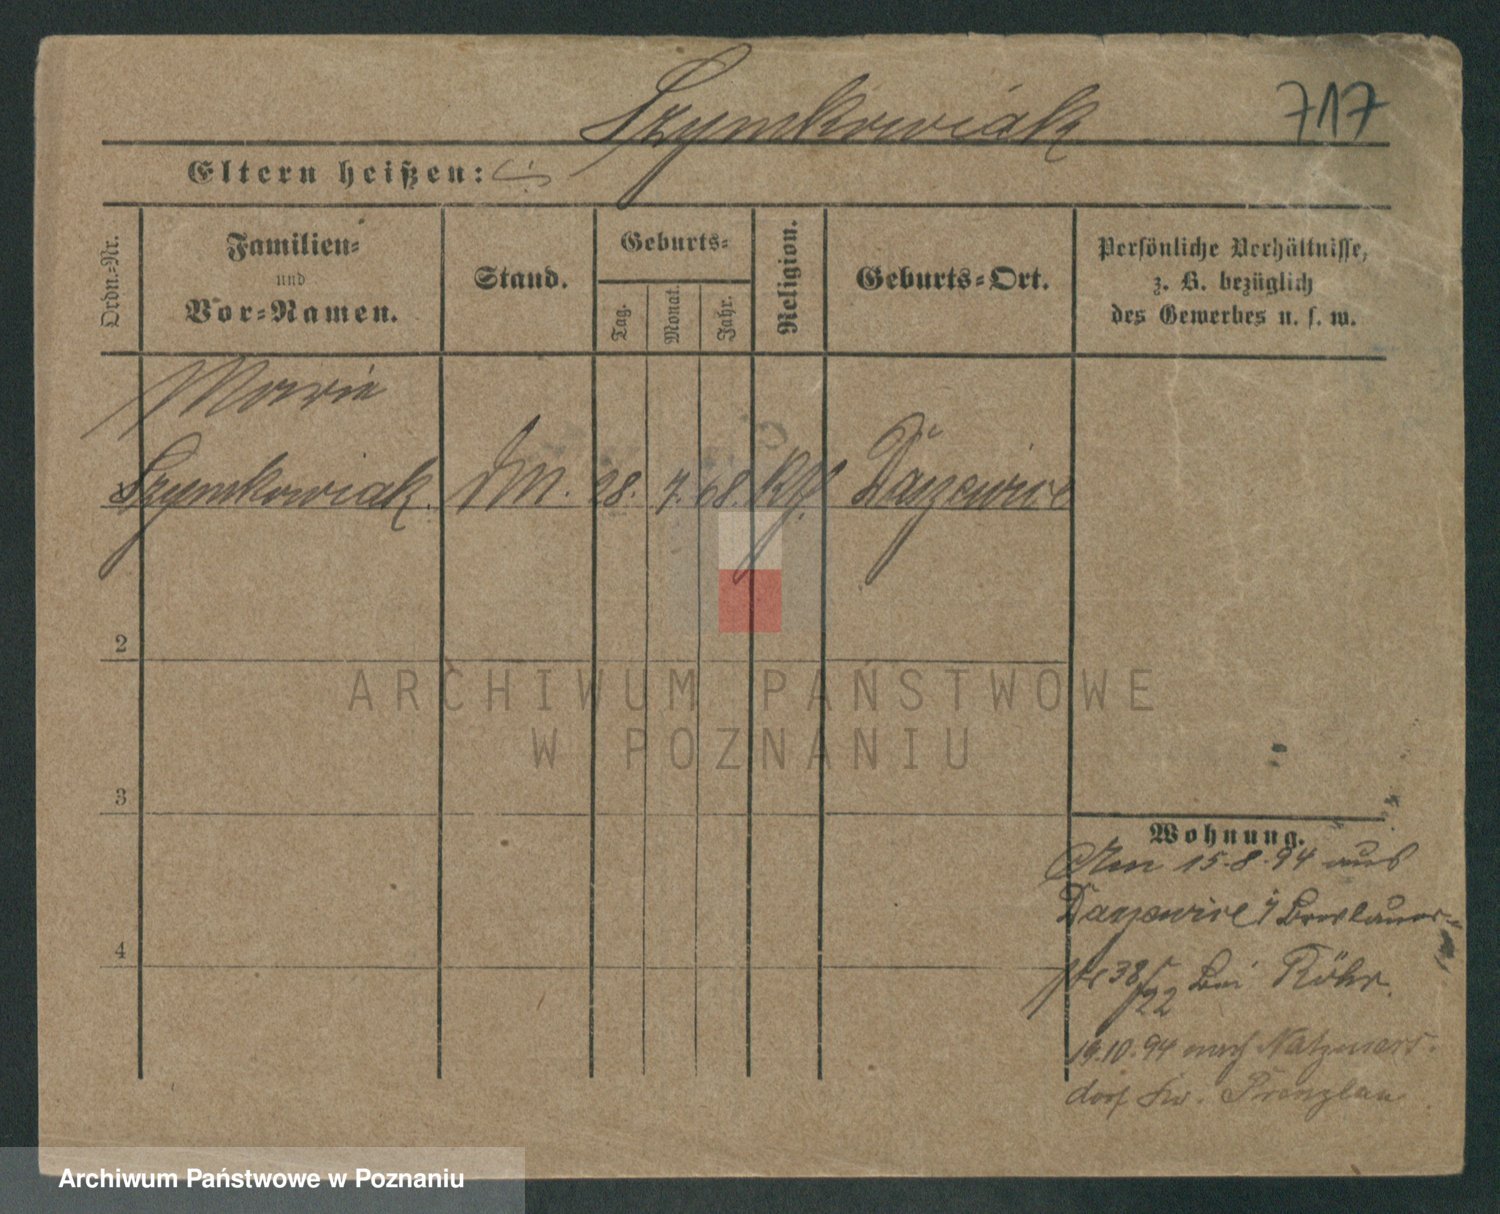 Szymkowiak
717
Eltern heißen:
Ordn.-Nr.
Familien-
und
Vor-Namen.
Stand.
Geburts-
Tag.
Monat.
Jahr.
Religion.
Geburts-Ort.
Persönliche Verhältnisse,
z. B. bezüglich
des Gewerbes u. s. w.
Marie
1 Szymkowiak. 28. 7. 68.
2
3
4
ARCHIWUM PAŃSTWOWE
W POZNANIU
Wohnung.
Am 15.8.94 aus
Breslauer-
str 38/22 bei Röhr.
19.10.94 nach
dorf Kr. Prenzlau
Archiwum Państwowe w Poznaniu